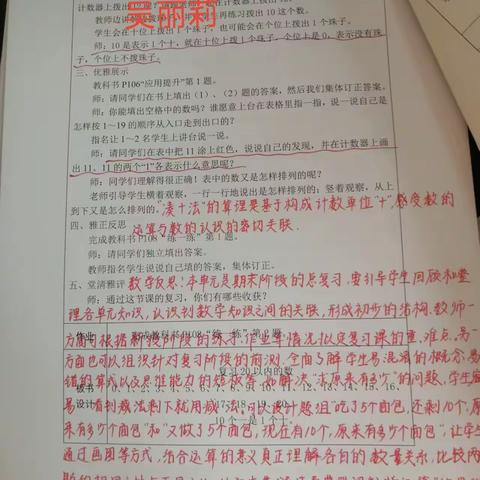 计数器上拨出
吴丽莉
教师边讲
再练习拨出10这个数。
学生会在十位上拨出1个珠子，也可能会在个位上拨出1个珠子。
师：10是表示1个十，就在十位上拨1个珠子，个位上是0，表示没有珠
子，个位上不拨珠子。
三、优雅展示
教科书P106“应用提升”第1题。
师：请同学们在书上填出（1）、（2）题的答案，然后我们集体订正答案。
师：你能填出空格中的数吗？谁愿意上台在表格里指一指，说一说自己是
怎样按1～19的顺序从入口走到出口的？
指名让1～2名学生上讲台说一说。
师：请同学们在表中把11涂上红色，说说自己的发现，并在计数器上画
出11、11的两个“1”各表示什么意思呢？
师：同学们理解得很正确！表中的数又是怎样排列的呢？
老师引导学生横着观察，一行一行地说出是怎样排列的；竖着观察，从上
到下又是怎么排列的。“凑十法”的算理是基于构成计数单位“十”，感受数的
四、雅正反思 运算与数的认识的密切关联.
完成教科书P108“练一练”第1题。
师：请同学们独立填出答案。
教师指名学生说说自己填的答案，集体订正。
五、堂清雅评 数学反思：本单元是期末阶段的总复习，要引导学生回顾和整
师：通过这节课的复习，你们有哪些收获？
理各单元知识，认识到数学知识之间的关联，形成初步的结构，教师一
作业 完成教科书P108“练一练”第2题
方面可根据新授阶段的练习、作业等情况拟定复习课的重、难点。另一
方面也可以组织针对复习阶段的前测，全面了解学生易混淆的概念，易
复习20以内的数
错的算式以及思维能力的短板等。如解决“求原来有多少”的问题，学生容
板书 0、1、2、3、4、5、6、7、8、9、10、11、12、13、14、15、16、
易一看到减法剩下就用减法，可以设计题组“吃了5个面包，还剩10个，原
设计 17、18、19、20
来有多少个面包”和“又做了5个面包，现在有10个，原来有多少个面包”，让学生
10个一是1个十。
通过画图等方式，结合运算的意义真正理解各自的数量关系，比较两